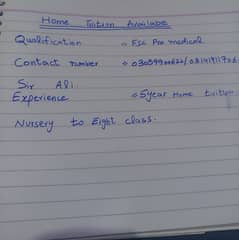 Home Tution Availabe
Qualification : Fsc Pre medical
Contact number :
Sir Ali
Experience : 5year Home tution
Nursery to Eight class.